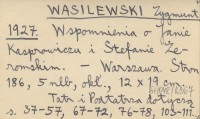 WASILEWSKI Zygmunt
1927. Wspomnienia o Janie
Kasprowiczu i Stefanie Że-
romskim. — Warszawa. Stron
186, 5 nlb., okł., 12 x 19 cm.
Tata i Portatza dotyczą
s. 37-57, 67-72, 76-78, 103-111